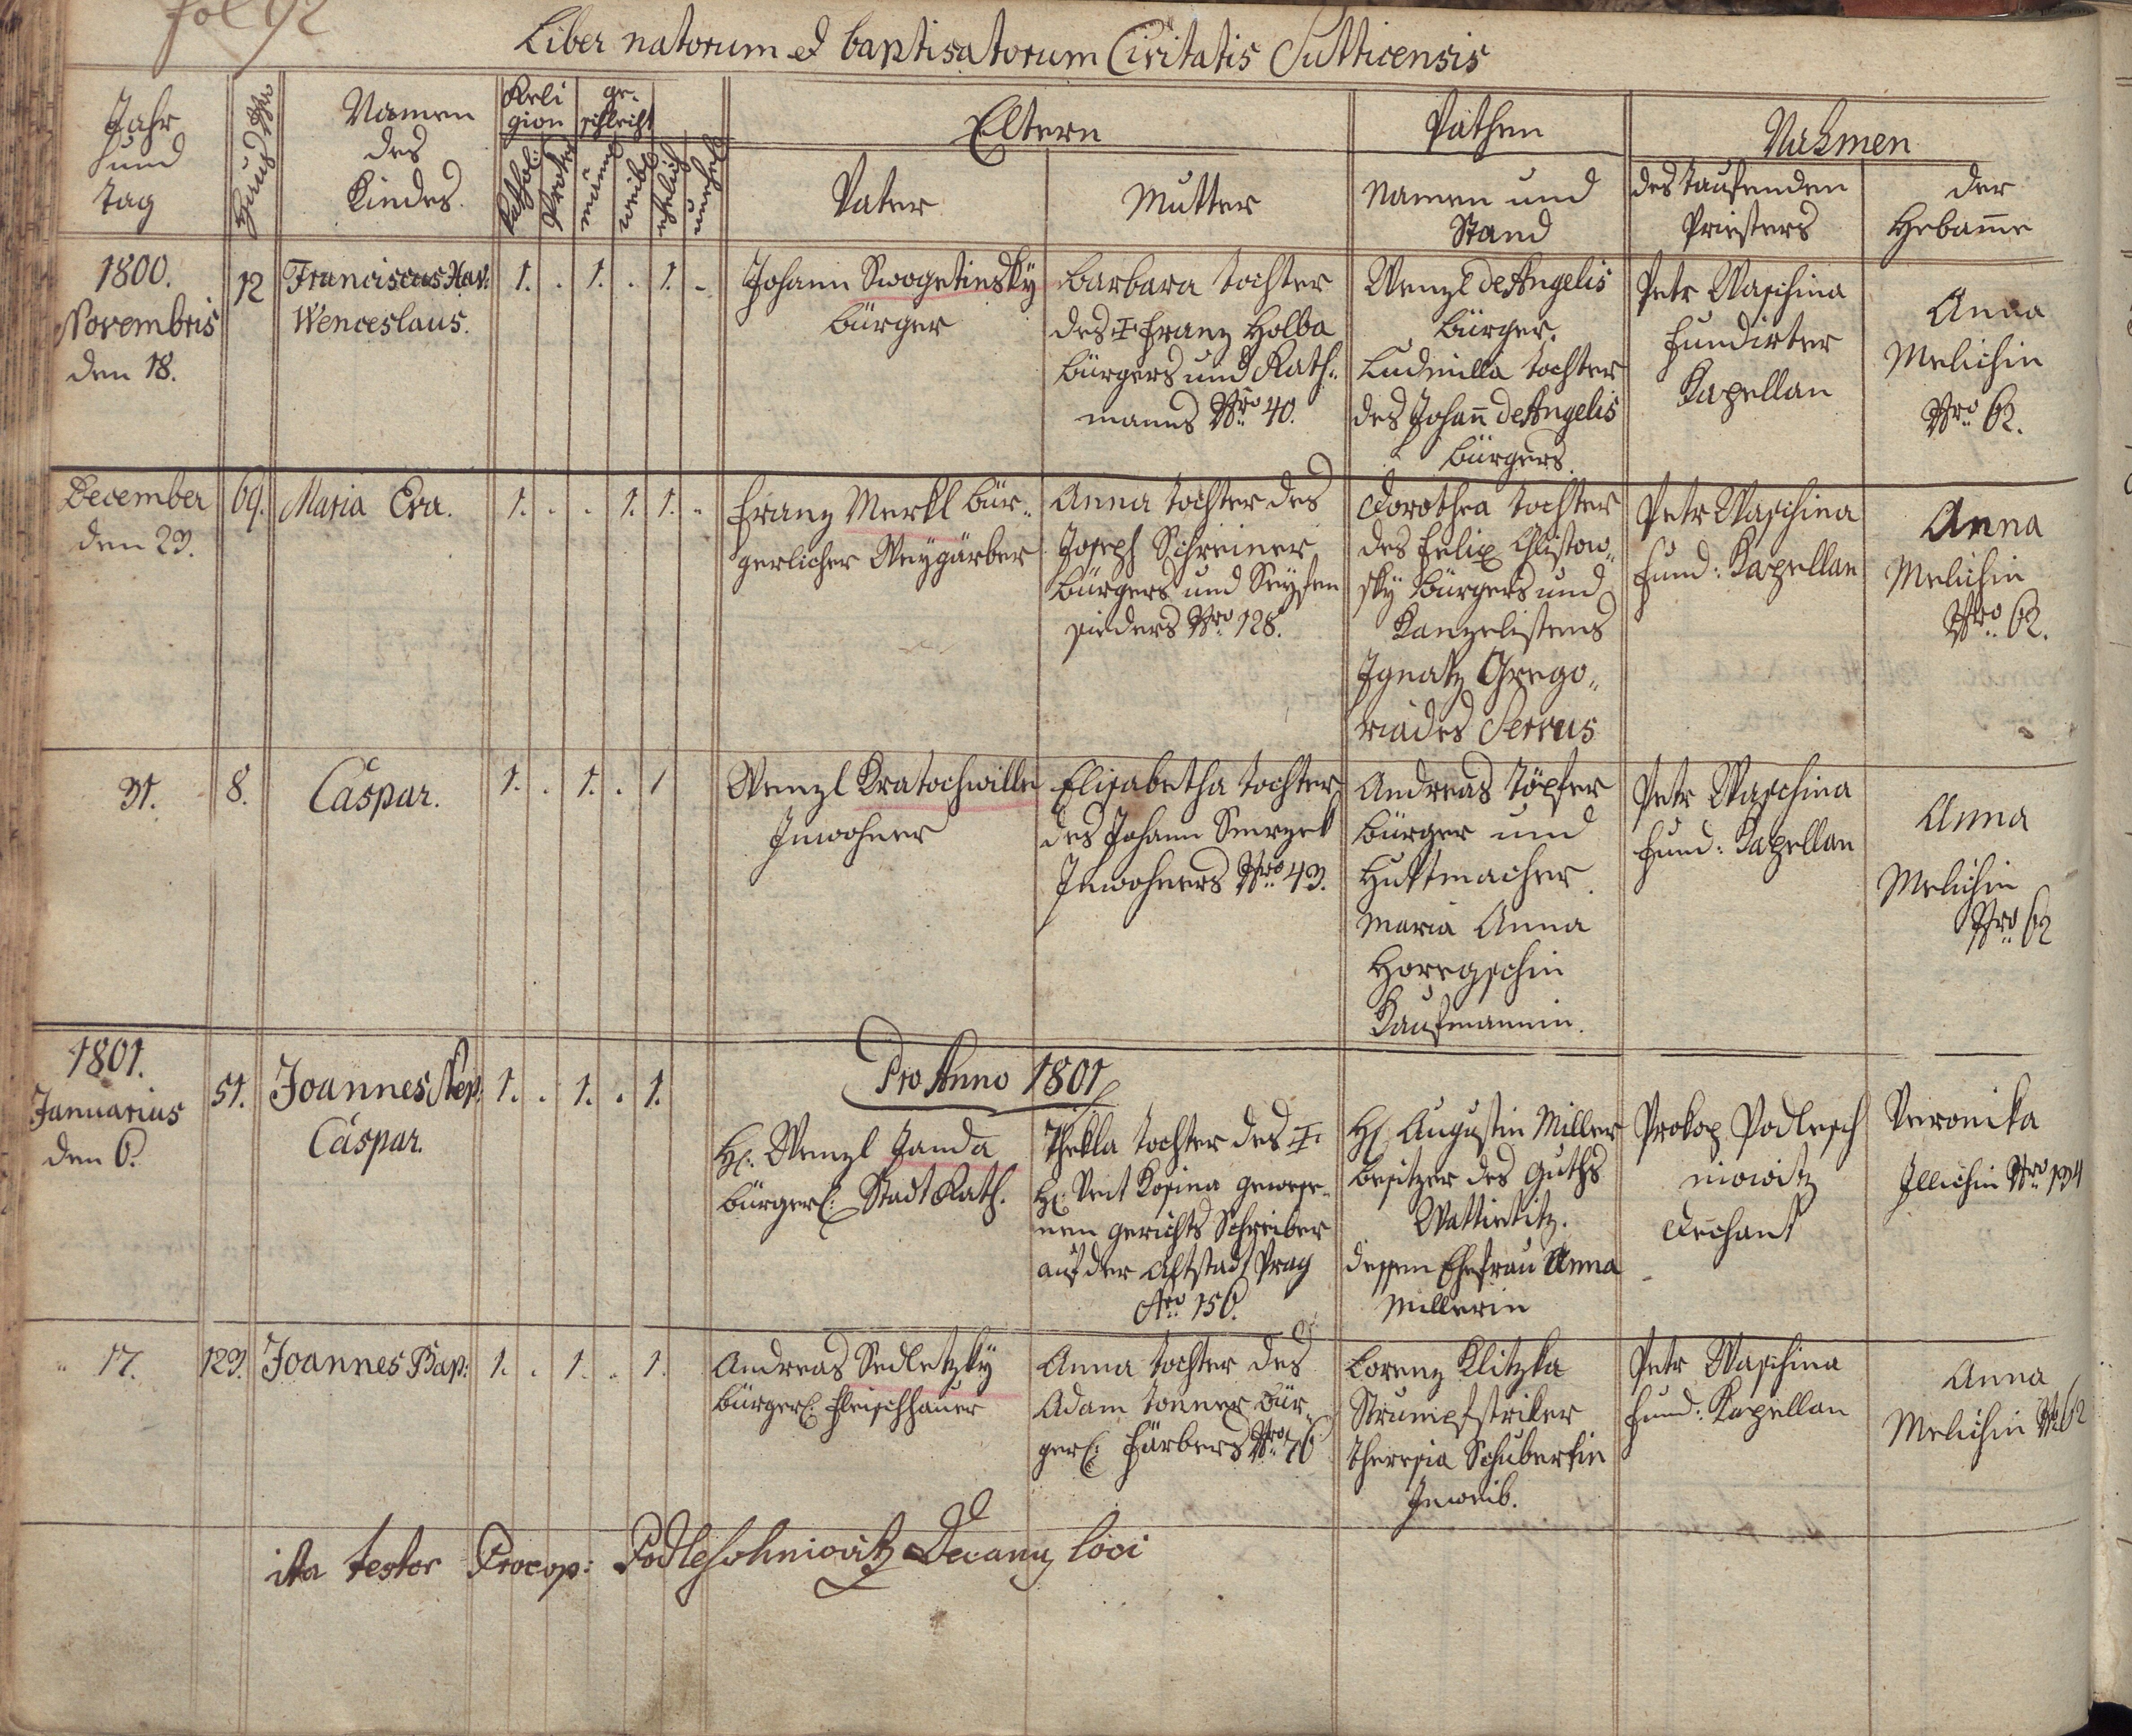 fol 92
Liber natorum et baptisatorum Civitatis Sutticensis
Jahr
und
tag
Hauß Nro
Namen
des
Kindes.
Reli
gion
Kathol:
Protes
ge-
schlecht
männl
weibl
ehelich
unehel
Eltern
Vater
Mutter
Pathen
Namen und
Stand
Nahmen
des taufenden
Priesters
der
Hebam̅e
1800.
Novembris
den 18.
12
Franciscus Xav:
Wenceslaus.
1. . 1. . 1. -
Johann Swogetinsky
bürger
Barbara tochter
des ☩ Franz Holba
bürgers und Rath-
manns Nro 40.
Wenzl de Angelis
bürger.
Ludmilla tochter
des Johan̅ de Angelis
bürgers.
Petr Waschina
fundirter
Kapellan
Anna
Melichin
Nro 62.
December
den 23.
69.
Maria Eva.
1. . . 1. 1. -
Franz Merkl bür-
gerlicher Weygärber
Anna tochter des
Joseph Schreiner
bürgers und Seyfen
sieders Nro 128.
Dorothea tochter
des Felix Chlistow-
sky bürgers und
Kanzelistens
Ignatz Grego-
riades Servus
Petr Waschina
fund: Kapellan
Anna
Melichin
Nro 62.
31.
8.
Caspar.
1. . 1. . 1
Wenzl Kratochwille
Inwohner
Elisabetha tochter
des Johann Smrzek
Inwohners Nro 43.
Andreas Töpfer
bürger und
Huttmacher.
Maria Anna
Horegschin
Kaufmannin.
Petr Waschina
fund: Kapellan
Anna
Melichin
Nro 62
Pro Anno 1801
1801.
Januarius
den 6.
51.
Joannes Nep:
Caspar.
1. . 1. . 1.
H: Wenzl Janda
bürgerl: Stadt Rath.
Thekla tochter des ☩
H: Veit Kosina gewese-
nen gerichts Schreiber
auf der Altstadt Prag
Nro 156.
H: Augustin Miller
besitzer des Guths
Wattietitz.
dessen Ehefrau Anna
Millerin
Prokop Podlesch
niowitz
Dechant
Veronika
Illichin Nro 134
" 17.
123.
Joannes Bap:
1. . 1. . 1.
Andreas Sedletzky
bürgerl: Fleischhauer
Anna tochter des
Adam Tonner bür-
gerl: Färbers Nro 76
Lorenz Klitzka
Strumpfstriker
Theresia Schubertin
Inweib.
Petr Waschina
fund: Kapellan
Anna
Melichin Nro 62
ita testor Procop: Podleschniovitz Decanus loci